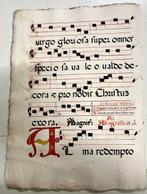 uirgo gloriosa super omnes
speciosa uale o ualde de
cora et pro nobis Christus
exora. Magnif.
Magnificat
Alma redempto